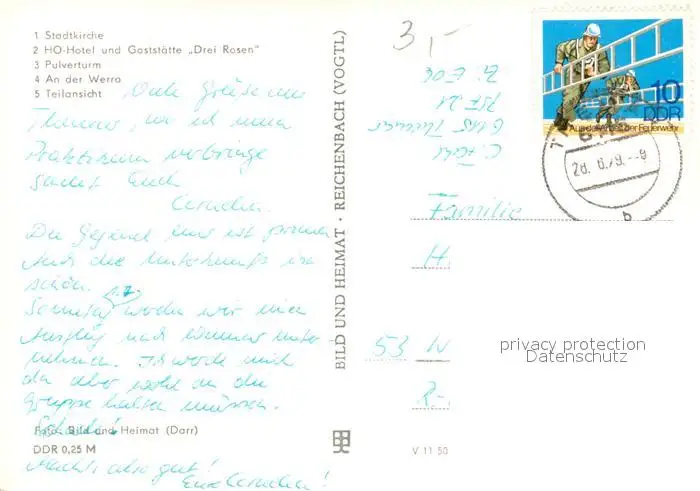 1 Stadtkirche
2 HO-Hotel und Gaststätte „Drei Rosen"
3 Pulverturm
4 An der Werra
5 Teilansicht
Grüße aus
wo ich mein
Praktikum verbringe
sendet Euch
Cornelia.
Die Gegend hier ist prima
Auch die Unterkunft ist
schön.
1.7.
Sonntag wollen wir einen
Ausflug nach unter-
nehmen. Ich werde mich
da aber wohl an die
Gruppe halten müssen.
Schade!
Foto: Bild und Heimat (Darr)
DDR 0,25 M
Macht's also gut!
Eure Cornelia!
BILD UND HEIMAT · REICHENBACH (VOGTL)
V 11 50
3,-
10
DDR
Aus der Arbeit der Feuerwehr
28.6.79.--8
b
C.
PSF 21
Familie
H.
53 W
R.-
privacy protection
Datenschutz